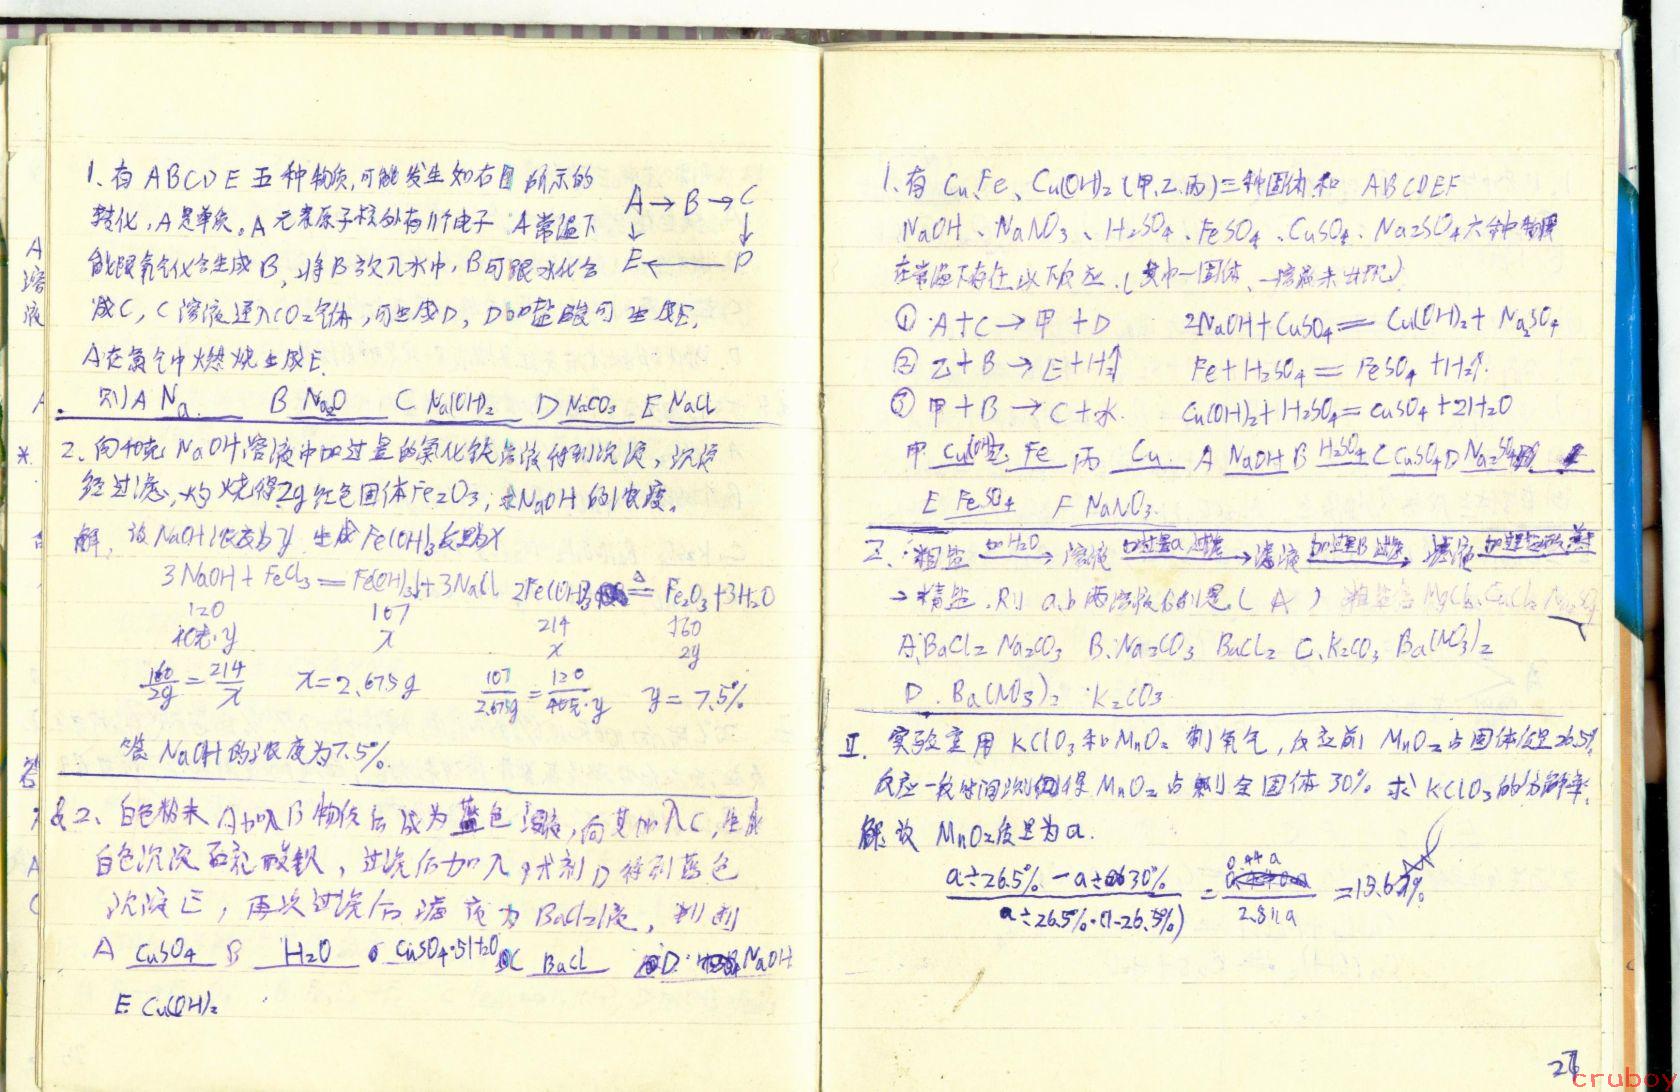 A
溶
液
A
*
答
A
C
1、有 ABCDE 五种物质,可能发生如右图所示的
转化,A是单质。A元素原子核外有11个电子 A常温下
能跟氧气化合生成B,将B放入水中,B可跟水化合
成C,C溶液通入CO2气体,可生成D,D加盐酸可生成E,
A在氯气中燃烧生成E.
A→B→C
↓ ↓
E←D
则 A Na. B Na2O C Na(OH)2 D NaCO3 E NaCl
2、向40克 NaOH溶液中加过量的氯化铁溶液得到沉淀,沉淀
经过滤,灼烧得2g红色固体Fe2O3,求NaOH的浓度。
解,设NaOH浓度为y 生成Fe(OH)3质量为x
3NaOH + FeCl3 = Fe(OH)3↓+3NaCl 2Fe(OH)3 △= Fe2O3+3H2O
120 107 214 160
40克·y x x 2g
160/2g = 214/x x=2.675g 107/2.675g = 120/40克·y y=7.5%
答 NaOH的浓度为7.5%.
2、白色粉末A加入B物质后成为蓝色溶液,向其加入C,生成
白色沉淀 硫酸钡,过滤后加入试剂D得到蓝色
沉淀E,再次过滤后滤液为BaCl2液,判断
A CuSO4 B H2O CuSO4·5H2O C BaCl D. NaOH
E Cu(OH)2
1、有 Cu、Fe、Cu(OH)2 (甲.乙.丙)三种固体和 ABCDEF
NaOH、NaNO3、H2SO4、FeSO4、CuSO4、Na2SO4六种物质
在常温下存在以下反应.(其中一固体、一溶液未出现)
① A+C→甲+D 2NaOH+CuSO4═Cu(OH)2+Na2SO4
② 乙+B→E+H2↑ Fe+H2SO4═FeSO4+H2↑.
③ 甲+B→C+水. Cu(OH)2+H2SO4=CuSO4+2H2O
甲 Cu(OH)2 乙 Fe 丙 Cu A NaOH B H2SO4 C CuSO4 D Na2SO4
E FeSO4 F NaNO3
2. 粗盐 加H2O→ 溶液 加过量a 过滤→ 滤液 加过量B 过滤→ 滤液
→精盐.则 a,b两溶液分别是.( A ) 粗盐含 MgCl2、CaCl2、Na2SO4
A.BaCl2 Na2CO3 B.Na2CO3 BaCl2 C.K2CO3 Ba(NO3)2
D. Ba(NO3)2 K2CO3
Ⅱ. 实验室用 KClO3和MnO2 制氧气,反应前 MnO2占固体质量26.5%
反应一段时间测得MnO2占剩余固体30% 求KClO3的分解率.
解,设 MnO2质量为a.
a÷26.5% - a÷30% / a÷26.5%·(1-26.5%) = 0.44a / 2.811a =15.6%
cruboy